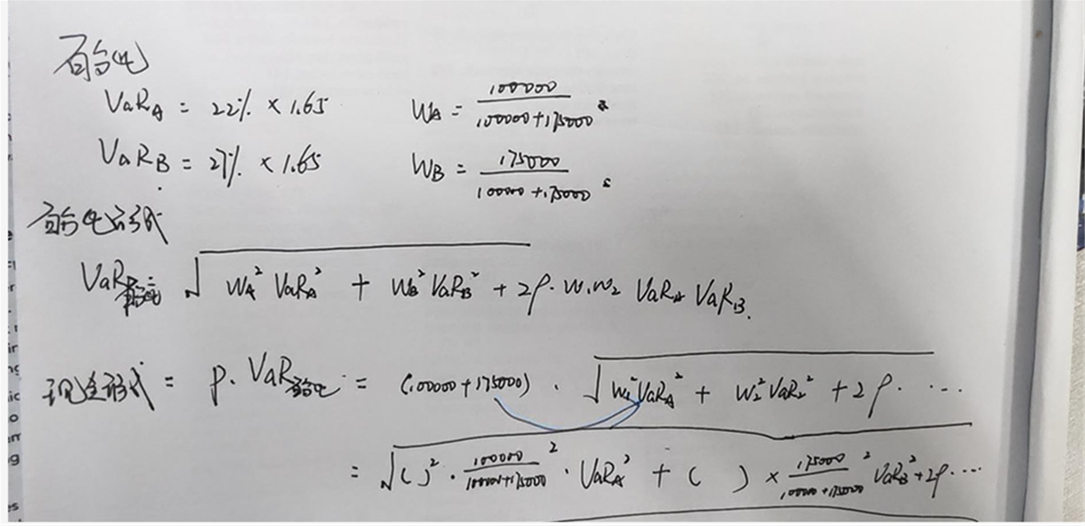 百分比
VaR_A = 22% × 1.65 W_A = 100000 / 100000+175000
VaR_B = 27% × 1.65 W_B = 175000 / 100000+175000
百分比形式
VaR百分比 √ W_A² VaR_A² + W_B² VaR_B² + 2ρ · W₁W₂ VaR_A VaR_B.
现金形式 = P · VaR百分比 = (100000+175000) · √ W₁² VaR_A² + W₂² VaR₂² + 2ρ · ···
= √ ( )² · 100000 / 100000+175000 ² · VaR_A² + ( ) × 175000 / 100000+175000 ² VaR_B² + 2ρ ····